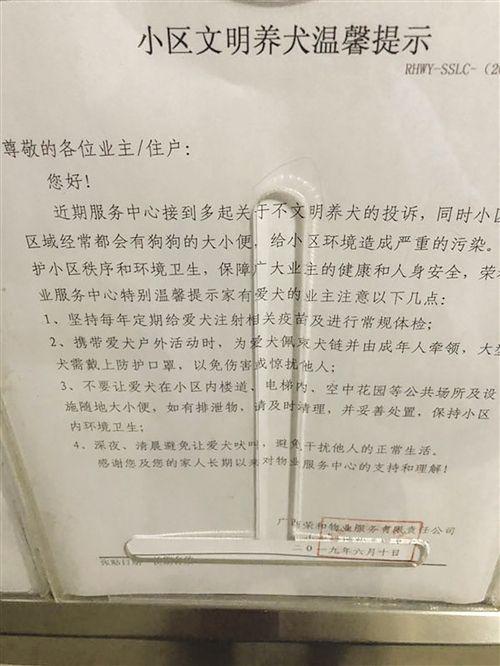 小区文明养犬温馨提示
RHWY-SSLC-（20
尊敬的各位业主/住户：
您好！
近期服务中心接到多起关于不文明养犬的投诉，同时小区
区域经常都会有狗狗的大小便，给小区环境造成严重的污染。
护小区秩序和环境卫生，保障广大业主的健康和人身安全，荣和
业服务中心特别温馨提示家有爱犬的业主注意以下几点：
1、坚持每年定期给爱犬注射相关疫苗及进行常规体检；
2、携带爱犬户外活动时，为爱犬佩束犬链并由成年人牵领，大型
犬需戴上防护口罩，以免伤害或惊扰他人；
3、不要让爱犬在小区内楼道、电梯内、空中花园等公共场所及设
施随地大小便，如有排泄物，请及时清理，并妥善处置，保持小区
内环境卫生；
4、深夜、清晨避免让爱犬吠叫，避免干扰他人的正常生活。
感谢您及您的家人长期以来对物业服务中心的支持和理解！
广西荣和物业服务有限责任公司
二〇一九年六月十日
张贴日期